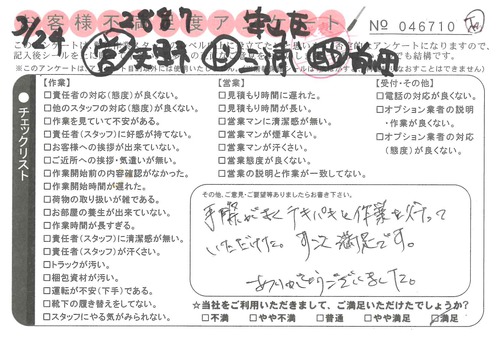 お客様不満足度アンケート
No 046710
2/29
2887
※このアンケートは
チェックリスト
【作業】
□責任者の対応(態度)が良くない。
□他のスタッフの対応(態度)が良くない。
□作業を見ていて不安がある。
□責任者(スタッフ)に好感が持てない。
□お客様への挨拶が出来ていない。
□ご近所への挨拶・気遣いが無い。
□作業開始前の内容確認がなかった。
□作業開始時間が遅れた。
□荷物の取り扱いが雑である。
□お部屋の養生が出来ていない。
□作業時間が長すぎる。
□責任者(スタッフ)に清潔感が無い。
□責任者(スタッフ)が汗くさい。
□トラックが汚い。
□梱包資材が汚い。
□運転が不安(下手)である。
□靴下の履き替えをしてない。
□スタッフにやる気がみられない。
【営業】
□見積もり時間に遅れた。
□見積もり時間が長い。
□営業マンに清潔感が無い。
□営業マンが煙草くさい。
□営業マンが汗くさい。
□営業態度が良くない。
□営業の説明と作業が一致してない。
【受付・その他】
□電話の対応が良くない。
□オプション業者の説明・作業が良くない。
□オプション業者の対応(態度)が良くない。
その他、ご意見・ご要望等ありましたらお書き下さい。
手際が良く テキパキと作業を行って
いただけた。すごく満足です。
ありがとうございました。
☆当社をご利用いただきまして、ご満足いただけたでしょうか?
□不満 □やや不満 □普通 □やや満足 □満足